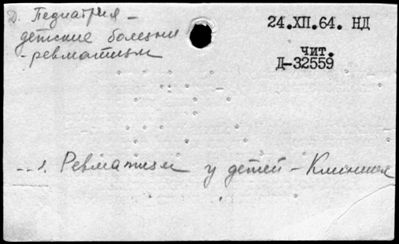 Д. Педиатрия -
детские болезни
- ревматизм
24.XII.64. НД
чит.
Д-32559
...1. Ревматизм у детей - Клиника